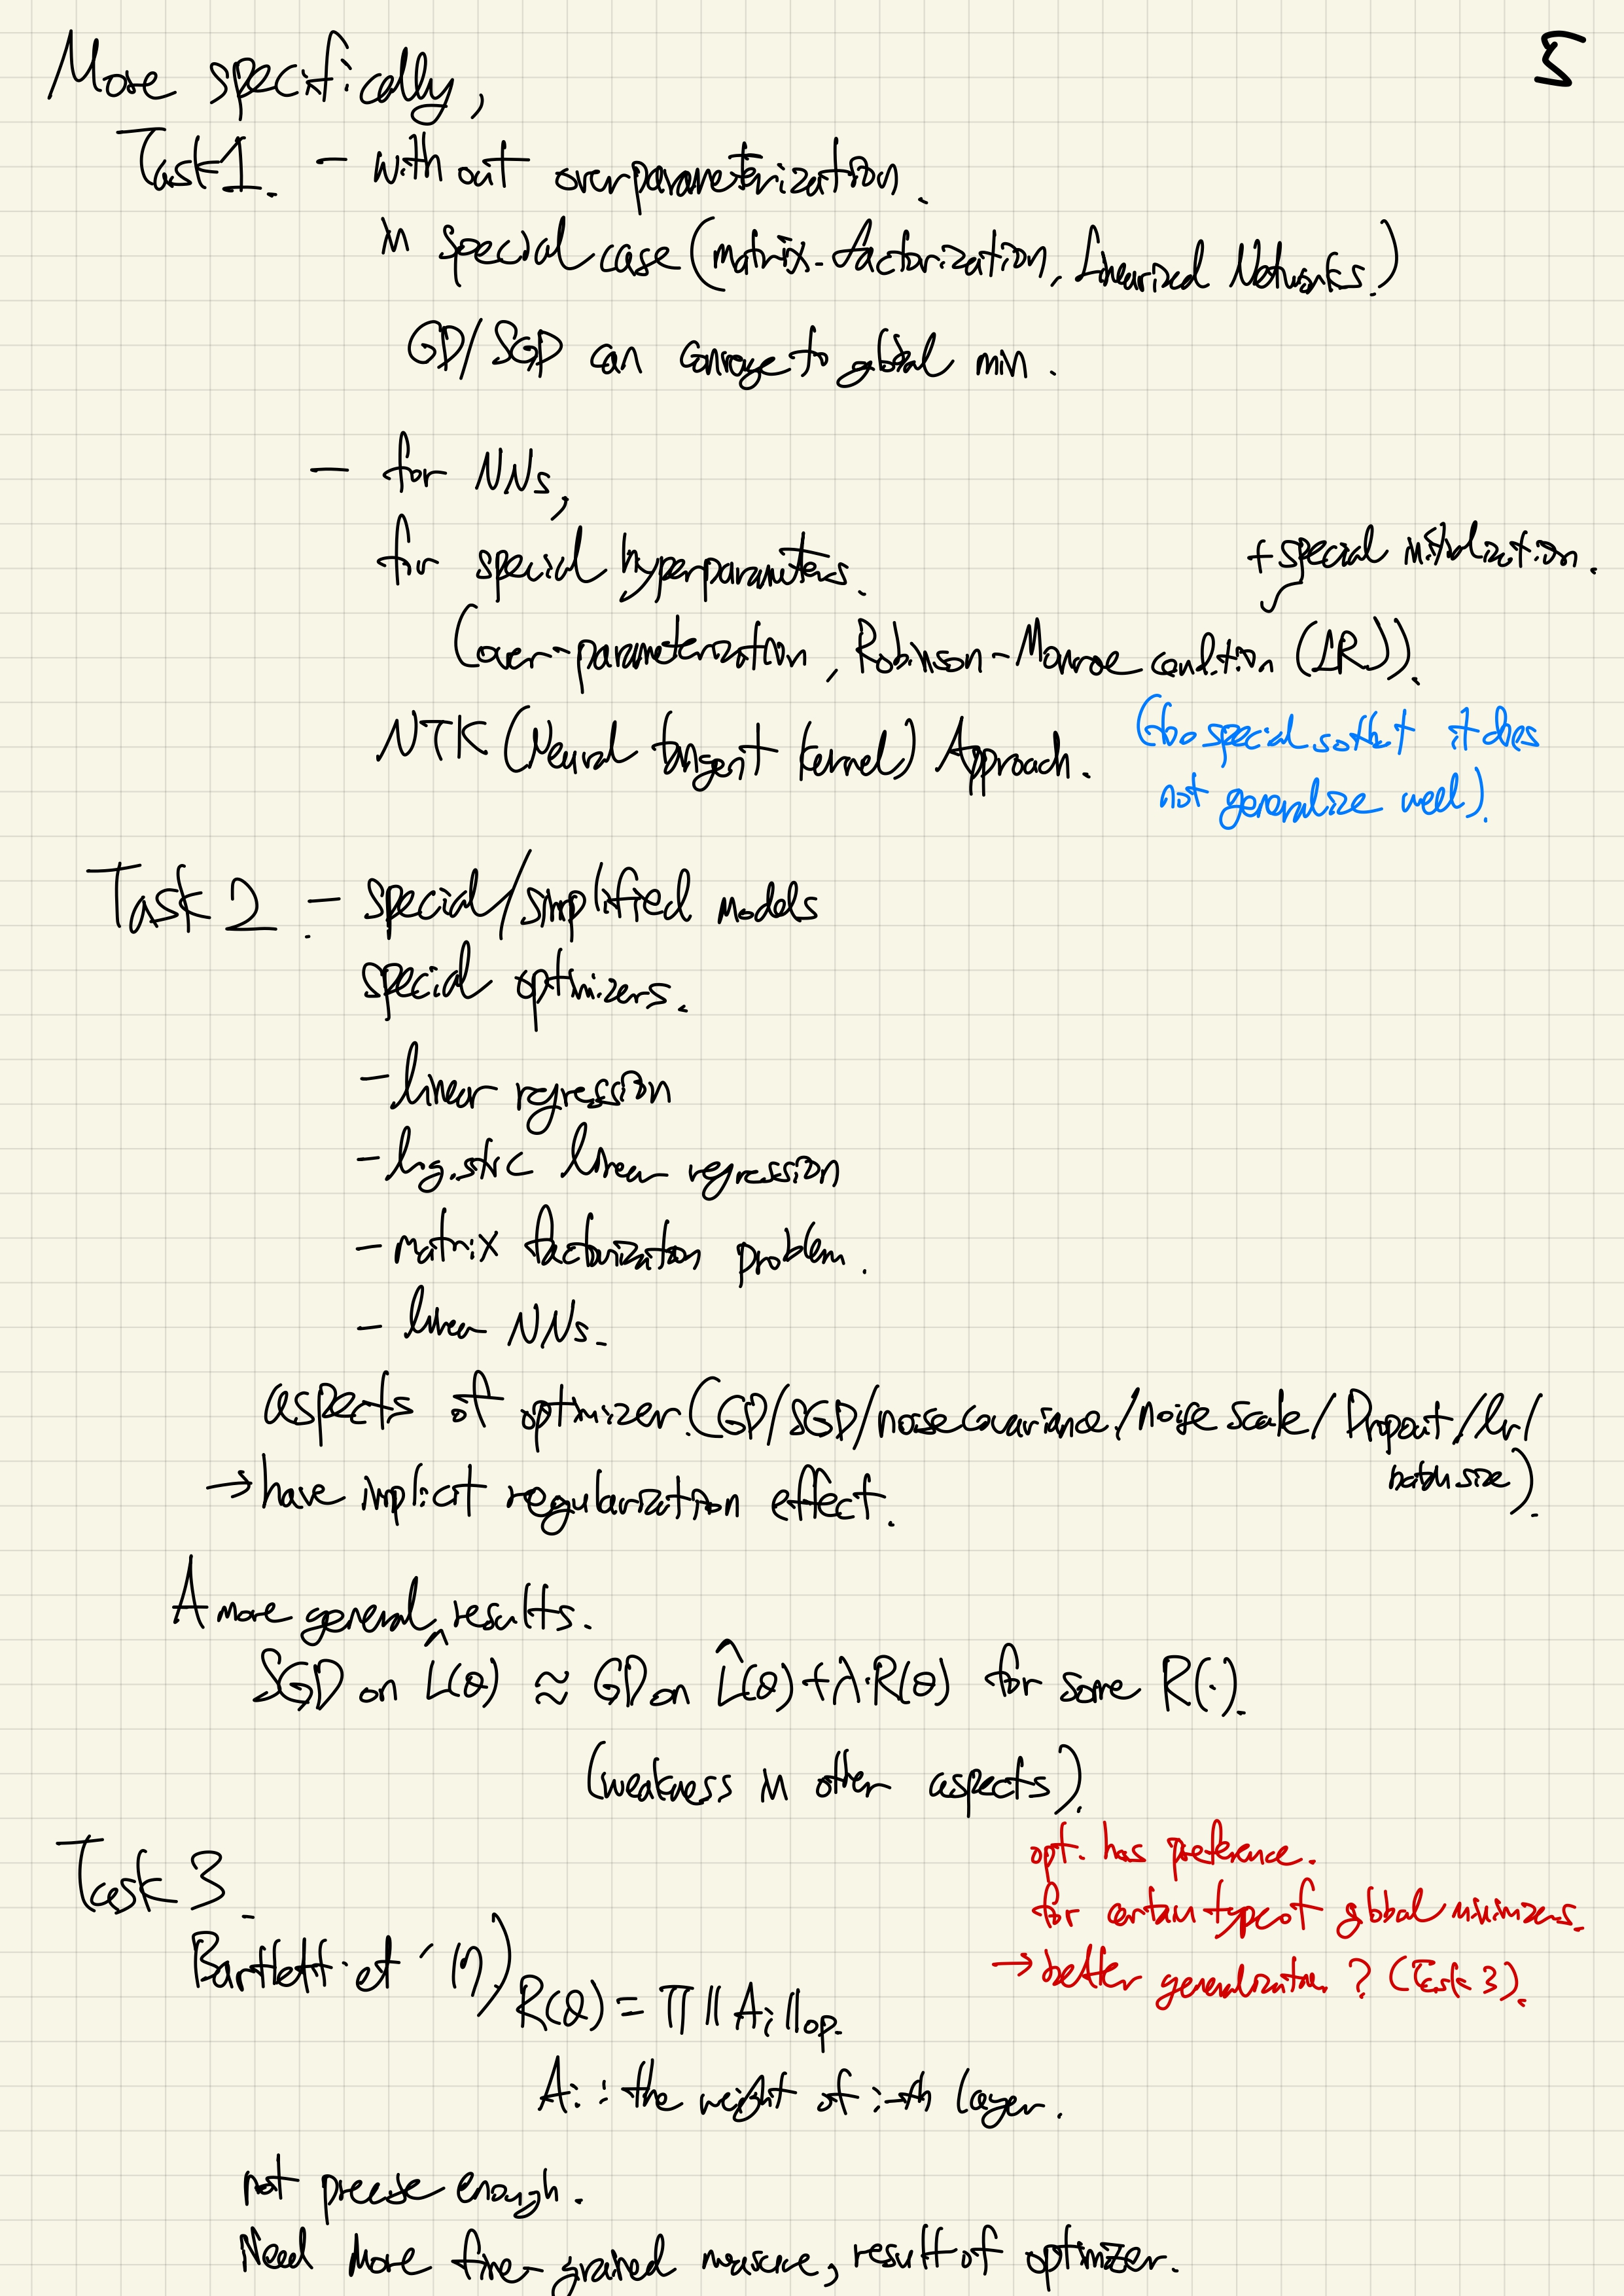 5
More specifically,
Task 1. - without overparameterization.
in special case (matrix-factorization, Linearized Networks.)
GD/SGD can converge to global min.
- for NNs,
for special hyperparameters.
+ special initialization.
(over-parameterization, Robinson-Monroe condition (LR)).
NTK (Neural tangent kernel) Approach.
(too special so that it does
not generalize well).
Task 2. - special/simplified models
special optimizers.
- linear regression
- logistic linear regression
- matrix factorization problem.
- linear NNs.
aspects of optimizer. (GD/SGD/noise covariance/noise scale/Dropout/lr/
batch size).
→ have implicit regularization effect.
A more general results.
SGD on L̂(θ) ≈ GD on L̂(θ)+λ·R(θ) for some R(·).
(weakness in other aspects).
opt. has preference.
for certain type of global minimizers.
→ better generalization? (Task 3).
Task 3.
Bartlett et '17)
R(θ) = Π ‖Ai‖op.
Ai : the weight of i-th layer.
not precise enough.
Need more fine-grained measure, result of optimizer.